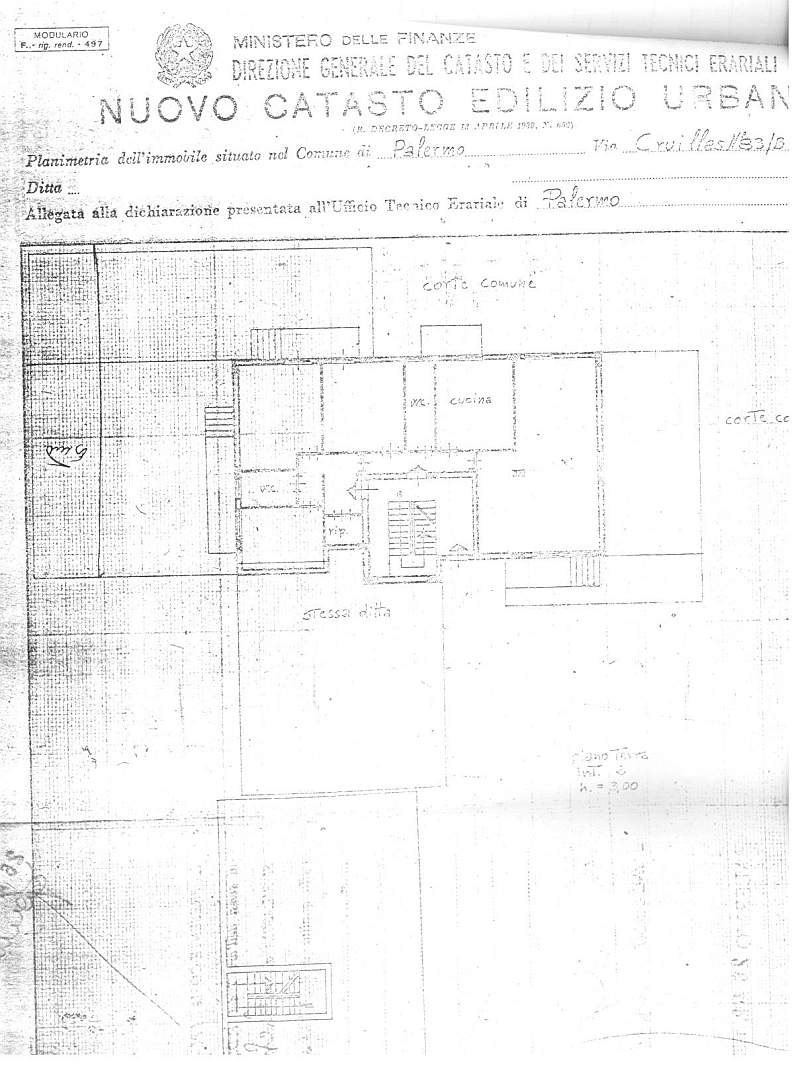 MODULARIO
F. - rig. rend. - 497
MINISTERO DELLE FINANZE
DIREZIONE GENERALE DEL CATASTO E DEI SERVIZI TECNICI ERARIALI
NUOVO CATASTO EDILIZIO URBAN
(R. DECRETO-LEGGE 13 APRILE 1939, N. 652)
Planimetria dell'immobile situato nel Comune di Palermo Via Cruillas
Ditta
Allegata alla dichiarazione presentata all'Ufficio Tecnico Erariale di Palermo
corte comune
wc. cucina
corte co
w.c.
rip.
stessa ditta
piano Terra
int.
h. = 3,00